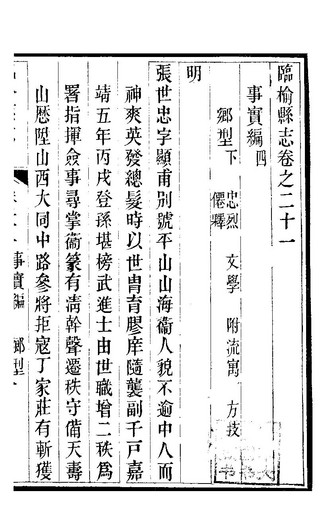 臨榆縣志卷之二十一
事實編四
鄉型下 忠烈 文學 附流寓 方技 僊釋
明
張世忠字顯甫别號平山山海衞人貌不逾中人而
神爽英發總髮時以世胄育膠庠隨襲副千戸嘉
靖五年丙戌登孫堪榜武進士由世職增二秩爲
署指揮僉事尋掌衞篆有淸幹聲遷秩守備天壽
山厯陞山西大同中路參將拒寇丁家莊有斬獲
事實編 鄉型下